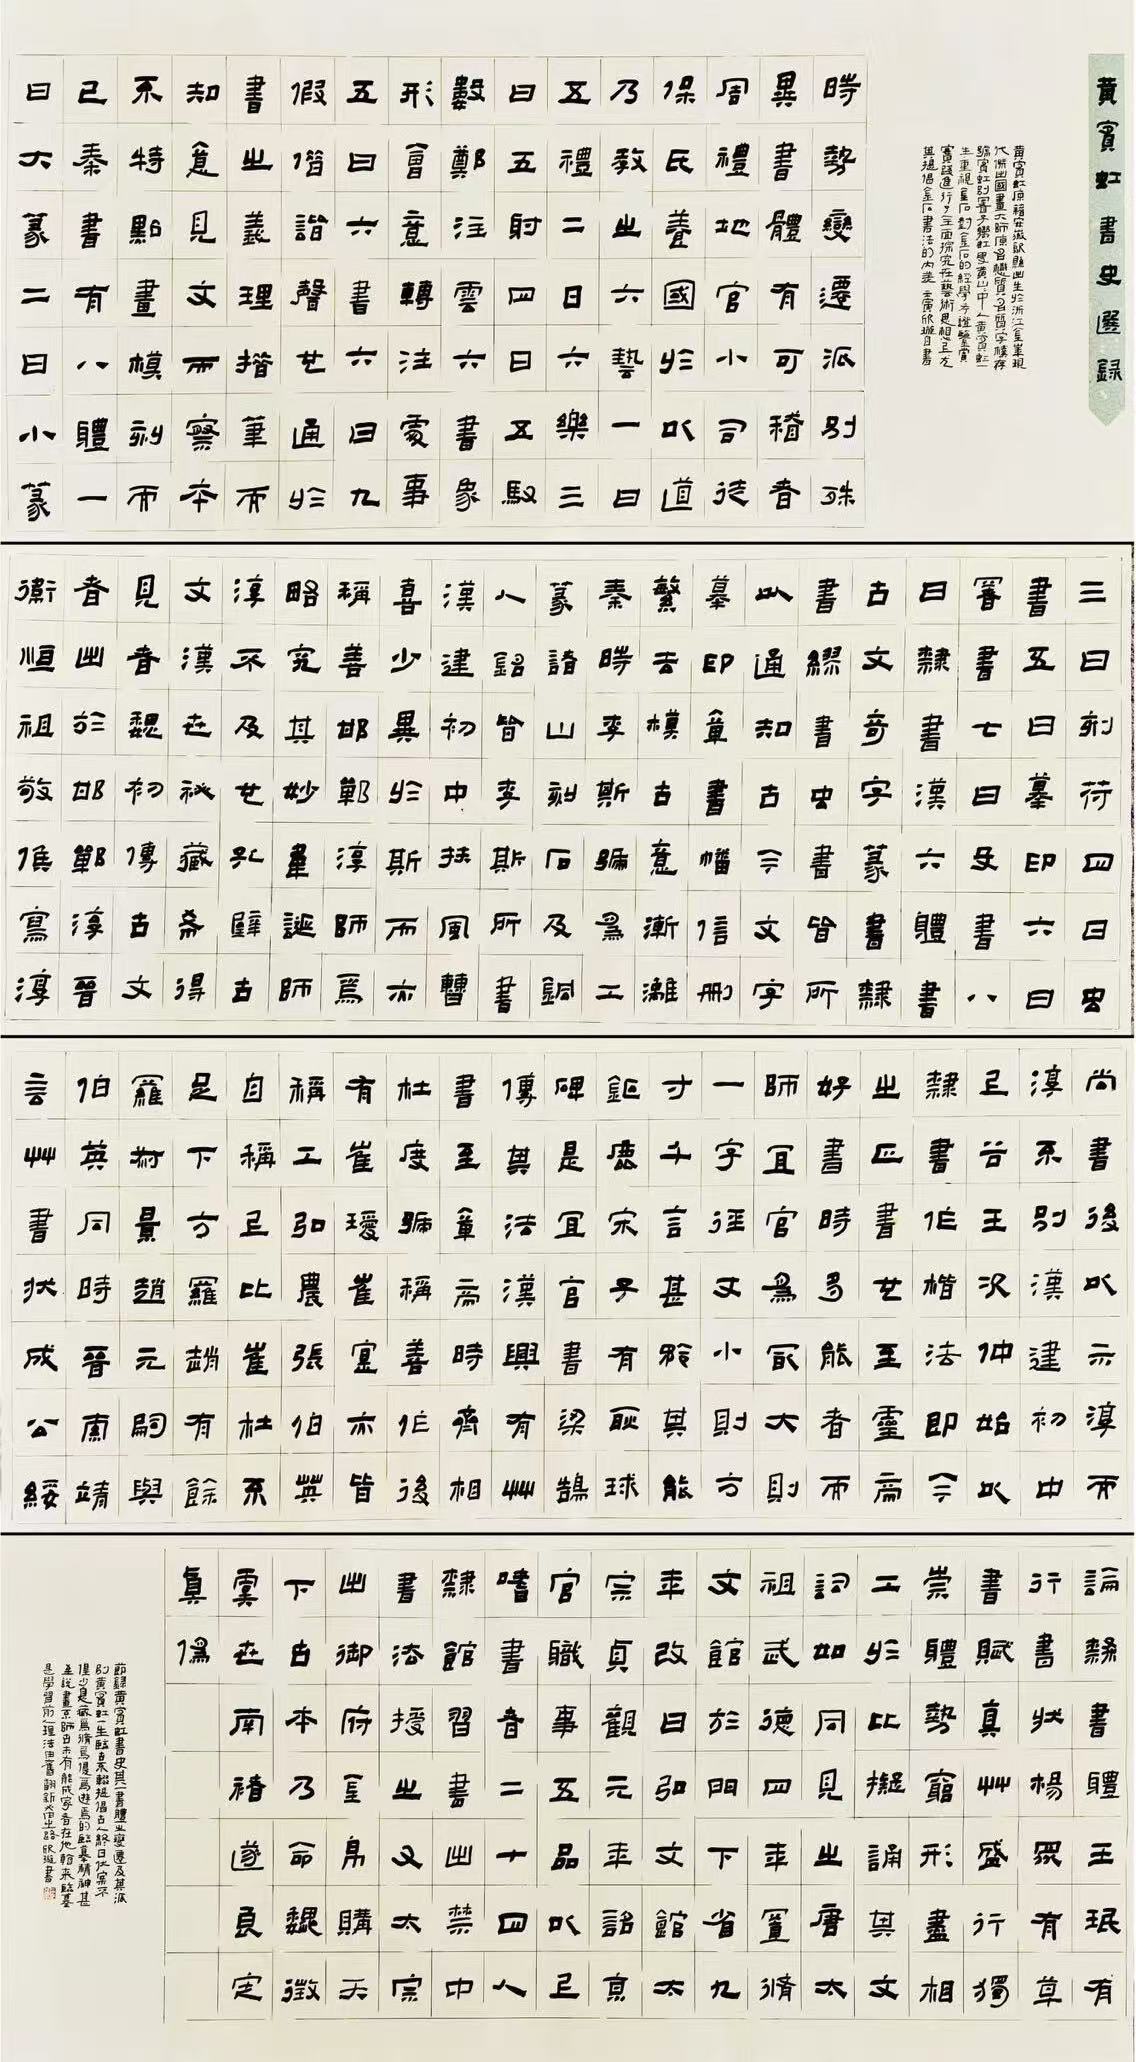 黃賓虹書史選錄
黃賓虹原籍安徽歙縣出生於浙江金華現
代傑出國畫大師原名懋質名質字樸存
號賓虹別署予
生重視金石對金石的經學考證鑒賞
實踐進行全面探究在藝術思想上尤
其提倡金石書法的內美
時勢變遷派別殊
異書體有可稽者
周禮地官小司徒
保氏養國於以道
乃教之六藝一曰
五禮二曰六樂三
曰五射四曰五馭
數鄭注雲六書象
形會意轉注處事
五曰六書六曰九
假借諧聲世通於
書之義理揩筆而
知意見文而察本
不特點畫模刻而
已秦書有八體一
曰大篆二曰小篆
三曰刻符四曰蟲
書五曰摹印六曰
署書七曰殳書八
曰隸書漢六體書
古文奇字篆書隸
書繆書蟲書皆所
以通知古今文字
摹印章書幡信刪
繁去樸古意漸漓
秦時李斯號為工
篆諸山刻石及銅
人銘皆李斯所書
漢建初中扶風曹
喜少異於斯而亦
稱善邯鄲淳師焉
略究其妙韋誕師
淳不及世孔壁古
文漢世祕藏希得
見者魏初傳古文
者出於邯鄲淳晉
衛恒祖敬侯寫淳
尚書後以示淳而
淳不別漢建初中
已谷王次仲始以
隸書作楷法即今
之正書世至靈帝
好書時多能者而
師宜官為最大則
一字徑丈小則方
寸千言甚矜其能
鉅鹿宋子有耿球
碑是宜官書梁鵠
傳其法漢興有艸
書至章帝時齊相
杜度號稱善作後
有崔瑗崔寔亦皆
稱工弘農張伯英
自稱上比崔杜不
足下方羅趙有餘
羅叔景趙元嗣與
伯英同時晉索靖
言艸書狀成公綏
論隸書體王珉有
行書狀楊眾有草
書賦真艸盛行獨
崇體勢窮形盡相
工於比擬誦其文
詞如同見之唐太
祖武德四年置脩
文館於門下省九
年改曰弘文館太
宗貞觀元年詔京
官職事五品以上
嗜書者二十四人
隸館習書出禁中
書法授之又太宗
出御府金帛購天
下古本乃命魏徵
虞世南褚遂良定
真偽
節錄黃賓虹書史其一書體之變遷及其派
別黃賓虹一生臨古不輟提倡古人終日伏案不